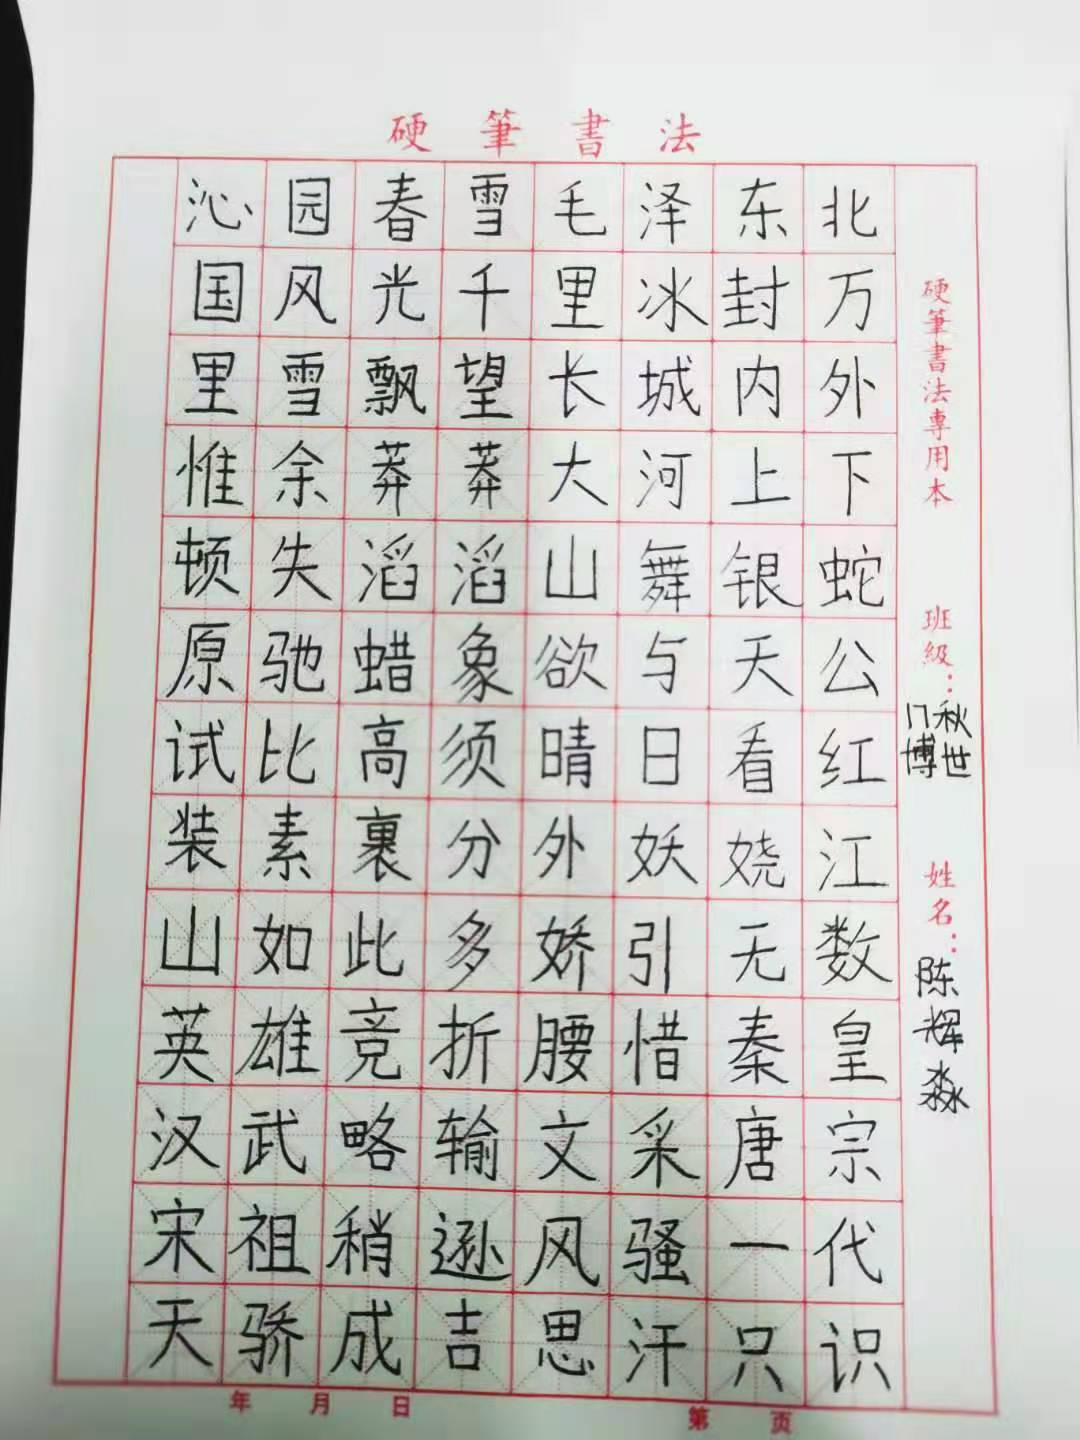 硬筆書法
沁园春雪毛泽东北
国风光千里冰封万
里雪飘望长城内外
惟余莽莽大河上下
顿失滔滔山舞银蛇
原驰蜡象欲与天公
试比高须晴日看红
装素裹分外妖娆江
山如此多娇引无数
英雄竞折腰惜秦皇
汉武略输文采唐宗
宋祖稍逊风骚一代
天骄成吉思汗只识
硬筆書法專用本
班級：
秋世
博
姓名：陈辉淼
年月日
第页